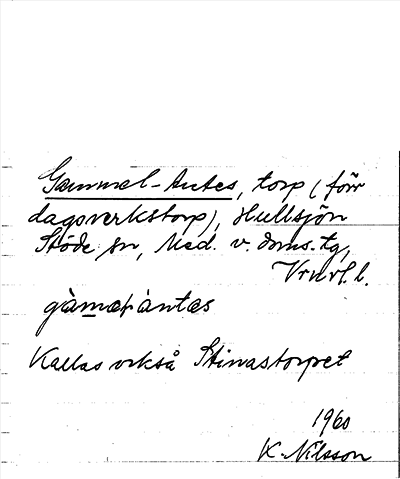 Gammel-Antes, torp (förr
dagsverkstorp), Hullsjön
Stöde sn, Med. v. doms. tg,
Vrnrl. l.
gàmel àntes
Kallas också Stinastorpet
1960
K. Nilsson